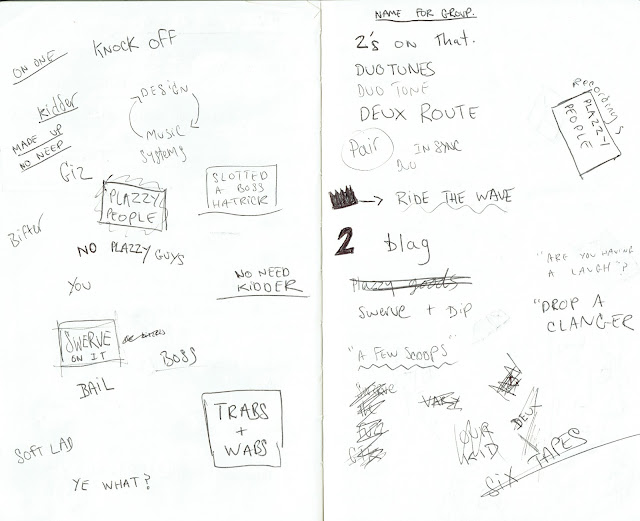 ON ONE
KNOCK OFF
Kidder
DESIGN
MUSIC
SYSTEMS
MADE UP
NO NEED
Giz
PLAZZY
PEOPLE
SLOTTED
A BOSS
HATRICK
Bifter
NO PLAZZY GUYS
YOU
NO NEED
KIDDER
SWERVE
ON IT
BOSS
BAIL
TRABS
+
WABS
SOFT LAD
YE WHAT?
NAME FOR GROUP.
2's ON That.
DUO TUNES
DUO TONE
DEUX ROUTE
Recordings
PLAZZY
PEOPLE
Pair
IN SYNC
DUO
RIDE THE WAVE
2 blag
Plazzy goods
Swerve + Dip
"ARE YOU HAVING
A LAUGH"?
"DROP A
CLANGER
"A FEW SCOOPS"
VARY
OUR
KID
DEUX
SIX TAPES